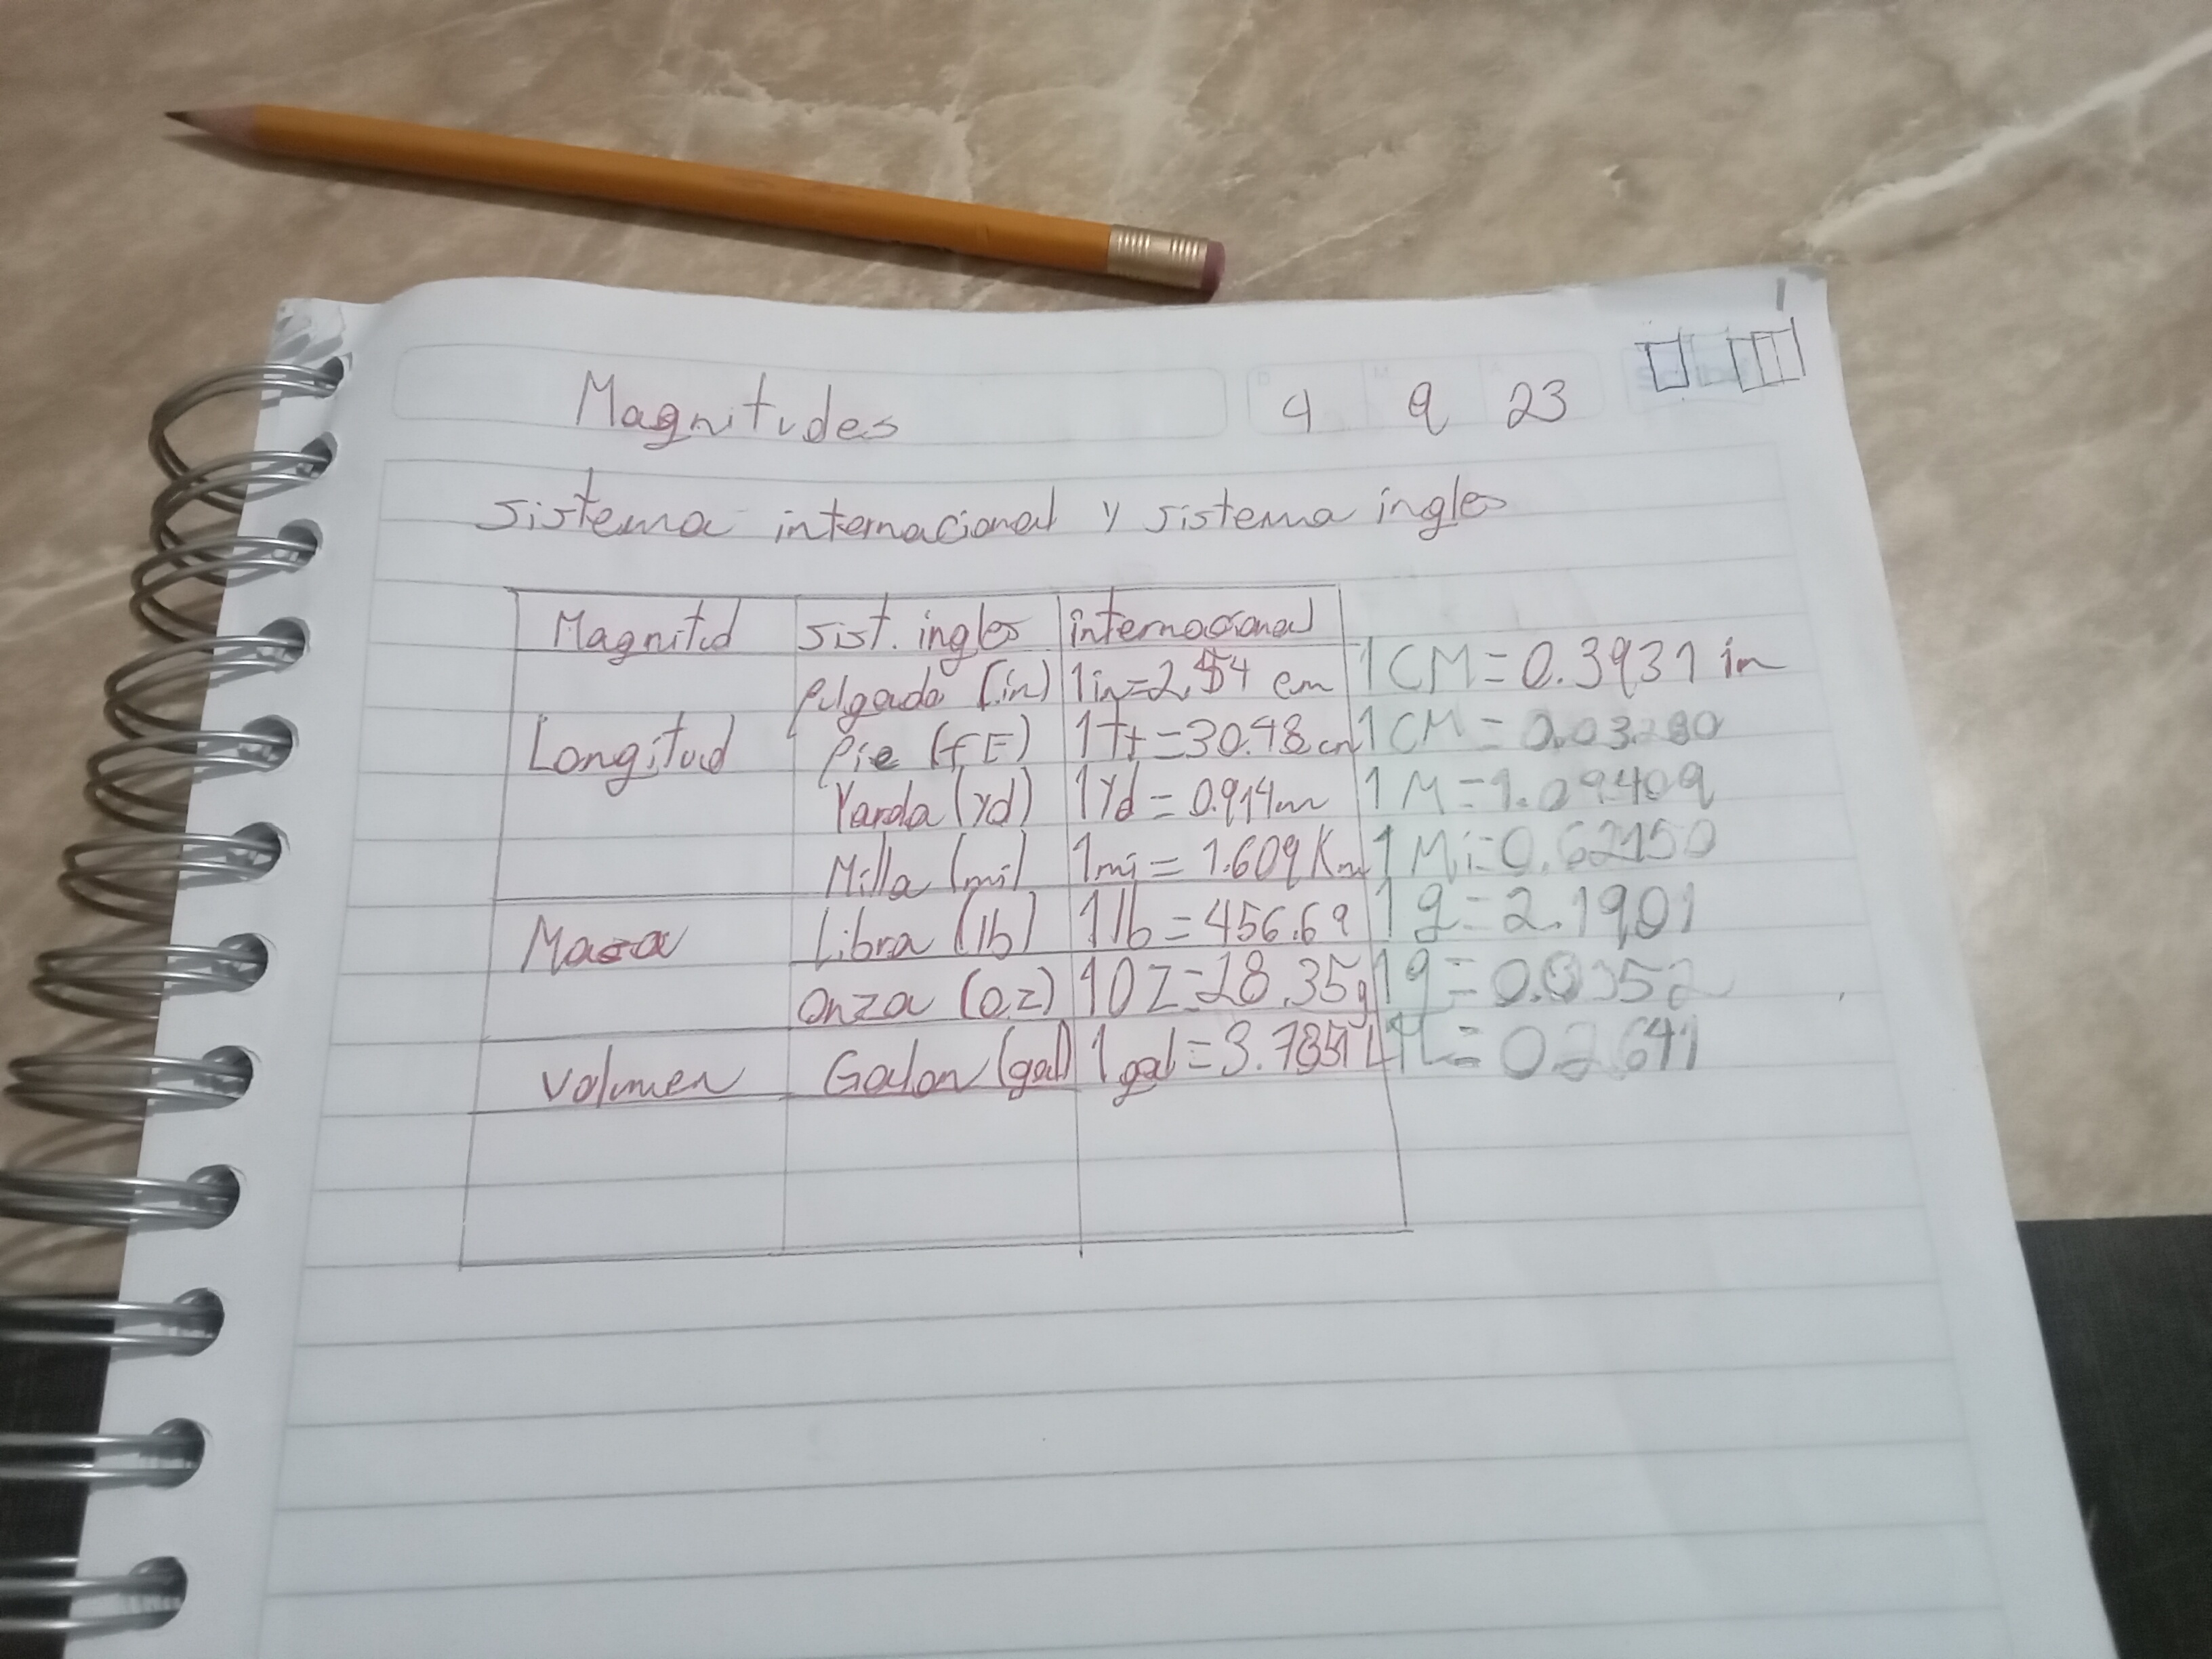 Magnitudes 4 9 23
Sistema internacional y sistema ingles
Magnitud Sist. ingles internacional
pulgada (in) 1in=2.54 cm 1CM=0.3931 in
Longitud Pie (ft) 1ft=30.48cm 1CM=0.03280
Yarda (yd) 1yd=0.914m 1M=1.09409
Milla (mi) 1mi=1.609Km 1Mi=0.62150
Masa Libra (lb) 1lb=456.69 1g=2.1901
Onza (oz) 1OZ=28.35g 1g=0.0352
Volumen Galon (gal) 1gal=3.7851L 1L=0.2641